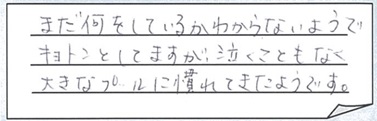 まだ何をしているかわからないようで
キョトンとしてますが、泣くこともなく
大きなプールに慣れてきたようです。